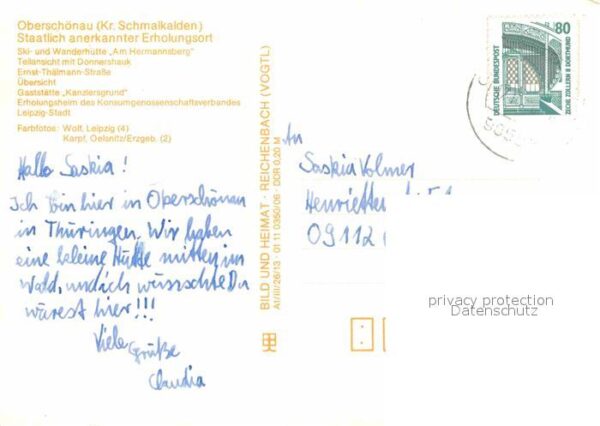 Oberschönau (Kr. Schmalkalden)
Staatlich anerkannter Erholungsort
Ski- und Wanderhütte „Am Hermannsberg"
Teilansicht mit Donnershauk
Ernst-Thälmann-Straße
Übersicht
Gaststätte „Kanzlersgrund"
Erholungsheim des Konsumgenossenschaftsverbandes
Leipzig-Stadt
Farbfotos: Wolf, Leipzig (4)
Karpf, Oelsnitz/Erzgeb. (2)
Hallo Saskia!
Ich bin hier in Oberschönau
in Thüringen. Wir haben
eine kleine Hütte mitten im
Wald, und ich wünschte Du
wärest hier!!!
Viele
Grüße
Claudia
BILD UND HEIMAT · REICHENBACH (VOGTL)
A1/III/26/13 · 01 11 0350/06 · DDR 0,20 M
80
DEUTSCHE BUNDESPOST
ZECHE ZOLLERN II DORTMUND
An
Saskia Volmer
09112
privacy protection
Datenschutz